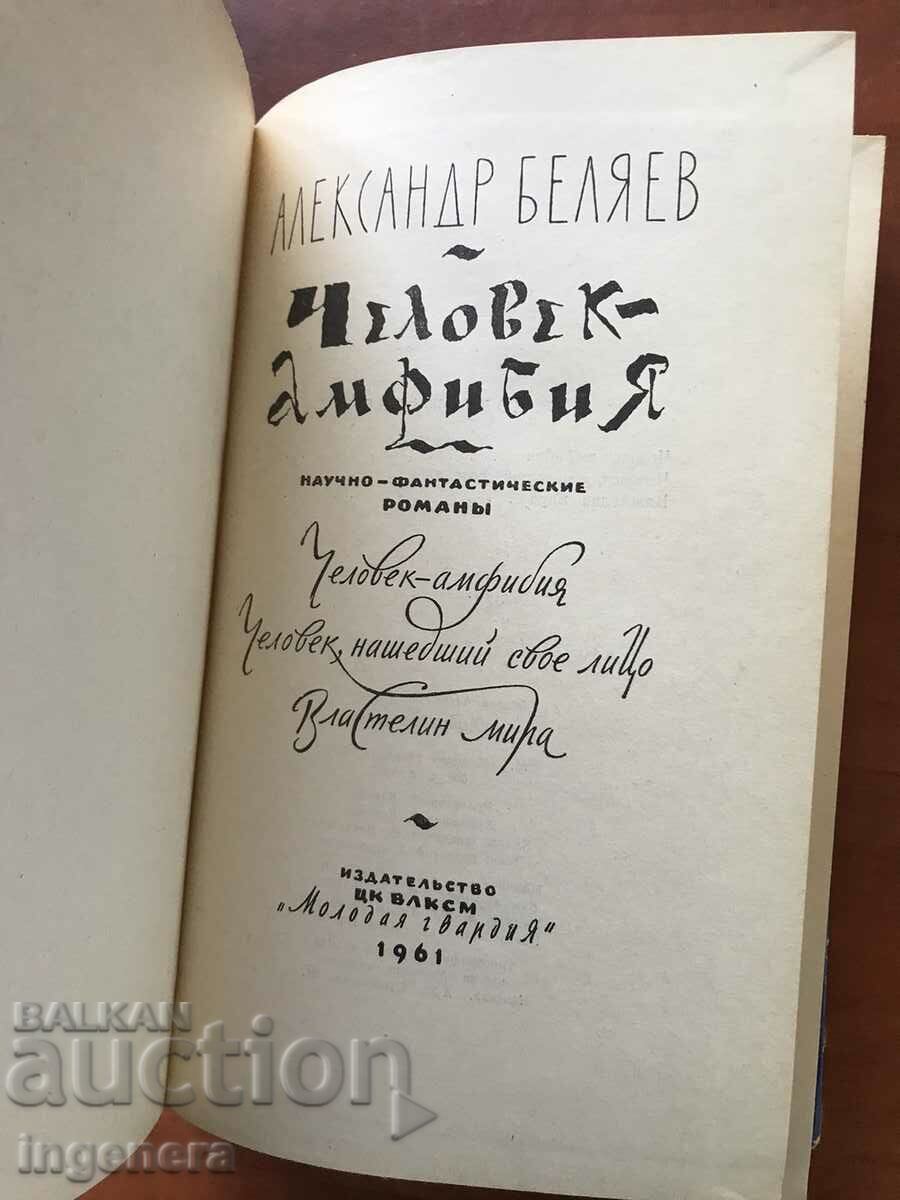 АЛЕКСАНДР БЕЛЯЕВ
Человек-
амфибия
НАУЧНО-ФАНТАСТИЧЕСКИЕ
РОМАНЫ
Человек-амфибия
Человек, нашедший свое лицо
Властелин мира
ИЗДАТЕЛЬСТВО
ЦК ВЛКСМ
„Молодая гвардия"
1961
BALKAN
auction
ingenera